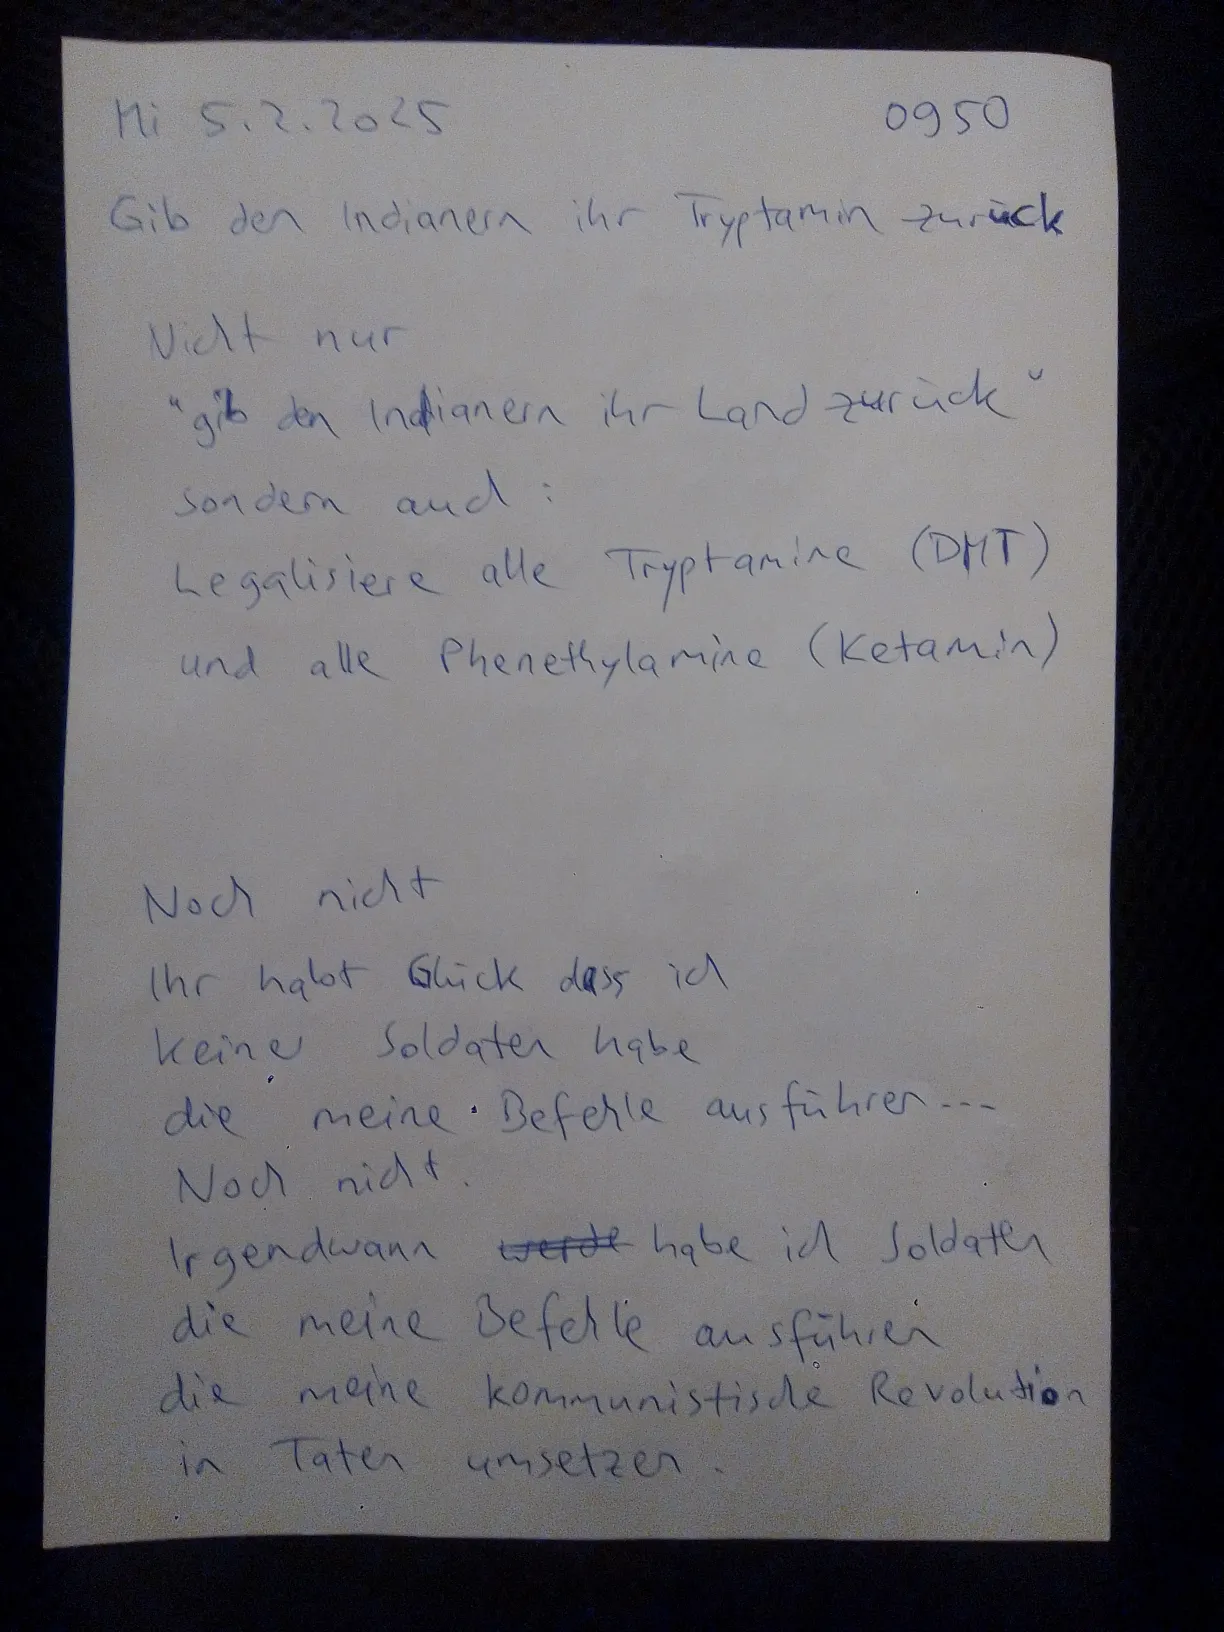 Mi 5.2.2025 0950
Gib den Indianern ihr Tryptamin zurück
Nicht nur
"gib den Indianern ihr Land zurück"
sondern auch :
Legalisiere alle Tryptamine (DMT)
und alle Phenethylamine (Ketamin)
Noch nicht
Ihr habt Glück dass ich
keine Soldaten habe
die meine Befehle ausführen ...
Noch nicht.
Irgendwann werde habe ich Soldaten
die meine Befehle ausführen
die meine kommunistische Revolution
in Taten umsetzen.